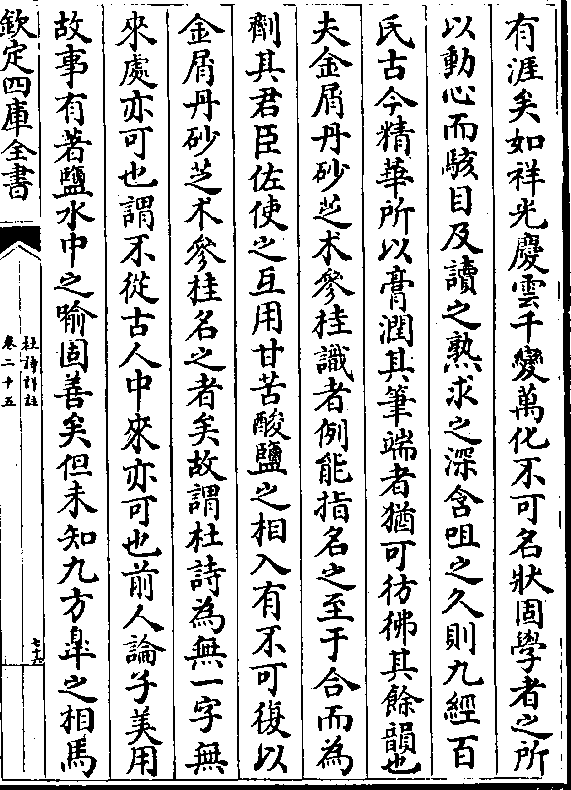 有涯矣如祥光慶雲千變萬化不可名狀固學者之所
以動心而駭目及讀之熟求之深含咀之久則九經百
氏古今精華所以膏潤其筆端者猶可彷彿其餘韻也
夫金屑丹砂芝朮參桂識者例能指名之至于合而為
劑其君臣佐使之互用甘苦酸鹽之相入有不可復以
金屑丹砂芝朮參桂名之者矣故謂杜詩為無一字無
來處亦可也謂不從古人中來亦可也前人論子美用
故事有著鹽水中之喻固善矣但未知九方臯之相馬
欽定四庫全書
杜詩詳註
卷二十五
七十九